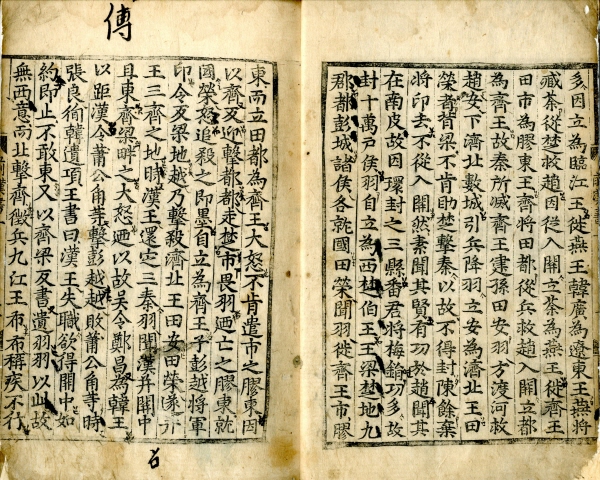 多因立為臨江王徙燕王韓廣為遼東王燕將
臧荼從楚救趙因從入關立荼為燕王徙齊王
田市為膠東王齊將田都從兵救趙入關立都
為齊王故秦所滅齊王建孫田安羽方渡河救
趙安下濟北數城引兵降羽立安為濟北王田
榮者背梁不肯助楚擊秦以故不得封陳餘棄
將印去不從入關然素聞其賢有功於趙聞其
在南皮故因環封之三縣番君將梅鋗功多故
封十萬戶侯羽自立為西楚伯王王梁楚地九
郡都彭城諸侯各就國田榮聞羽徙齊王市膠
傳
東而立田都為齊王大怒不肯遣市之膠東因
以齊反迎擊都都走楚市畏羽迺亡之膠東就
國榮怒追殺之即墨自立為齊王予彭越將軍
印令反梁地越乃擊殺濟北王田安田榮遂并
王三齊之地時漢王還定三秦羽聞漢并關中
且東齊梁畔之大怒迺以故吳令鄭昌為韓王
以距漢令蕭公角等擊彭越越敗蕭公角等時
張良徇韓遺項王書曰漢王失職欲得關中如
約即止不敢東又以齊梁反書遺羽羽以此故
無西意而北擊齊徵兵九江王布布稱疾不行